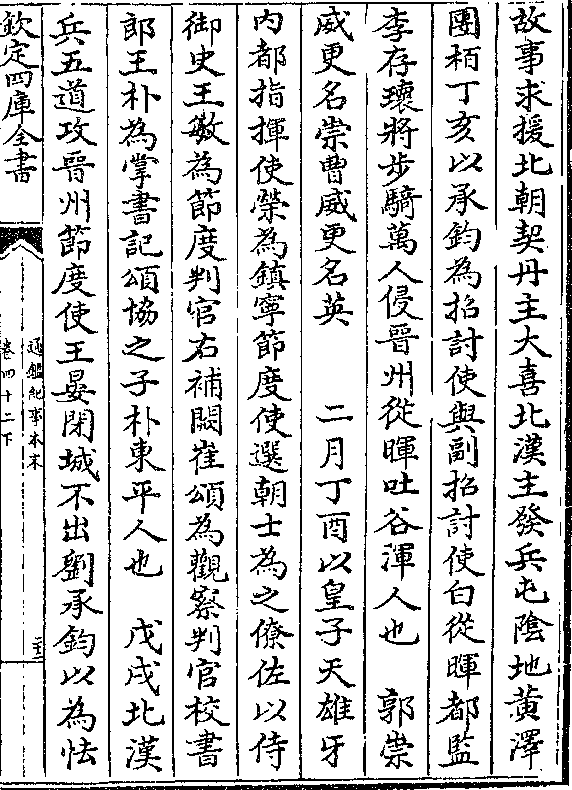 故事求援北朝契丹主大喜北漢主發兵屯陰地黄澤
團柏丁亥以承鈞為招討使與副招討使白從暉都監
李存瓌將步騎萬人侵晉州從暉吐谷渾人也　郭崇
威更名崇曹威更名英　　二月丁酉以皇子天雄牙
内都指揮使榮為鎮寧節度使選朝士為之僚佐以侍
御史王敏為節度判官右補闕崔頌為觀察判官校書
郎王朴為掌書記頌協之子朴東平人也　戊戌北漢
兵五道攻晉州節度使王晏閉城不出劉承鈞以為怯
欽定四庫全書
通鑑紀事本末
卷四十二下